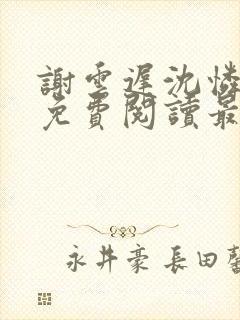 謝雲遲沈憐
免費閱讀最
永井豪 長田馨